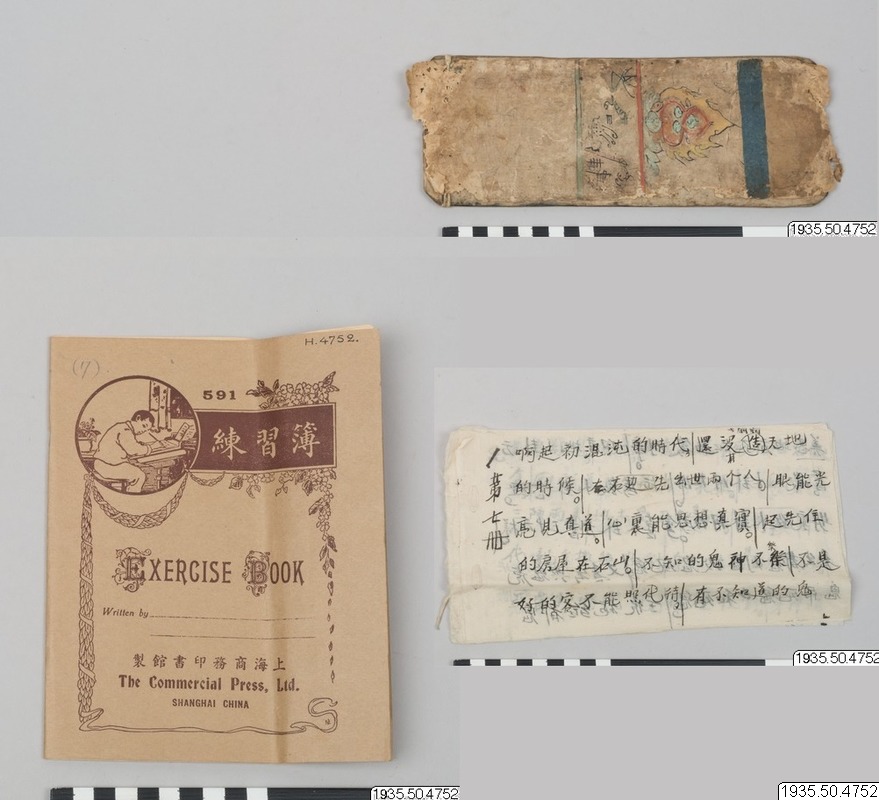 1935.50.4752
H.4752.
(7)
591
練習簿
EXERCISE BOOK
Written by
製館書印務商海上
The Commercial Press, Ltd.
SHANGHAI CHINA
1935.50.4752
第七册
啊起初混沌的時代還没造天地
的時候在石里先出世兩个人眼能光
亮見真道心裏能思想真實起先住
的房屋在石山不知的鬼神不祭不是
好的客不能照代待有不知道的鬼
1935.50.4752
1935.50.4752